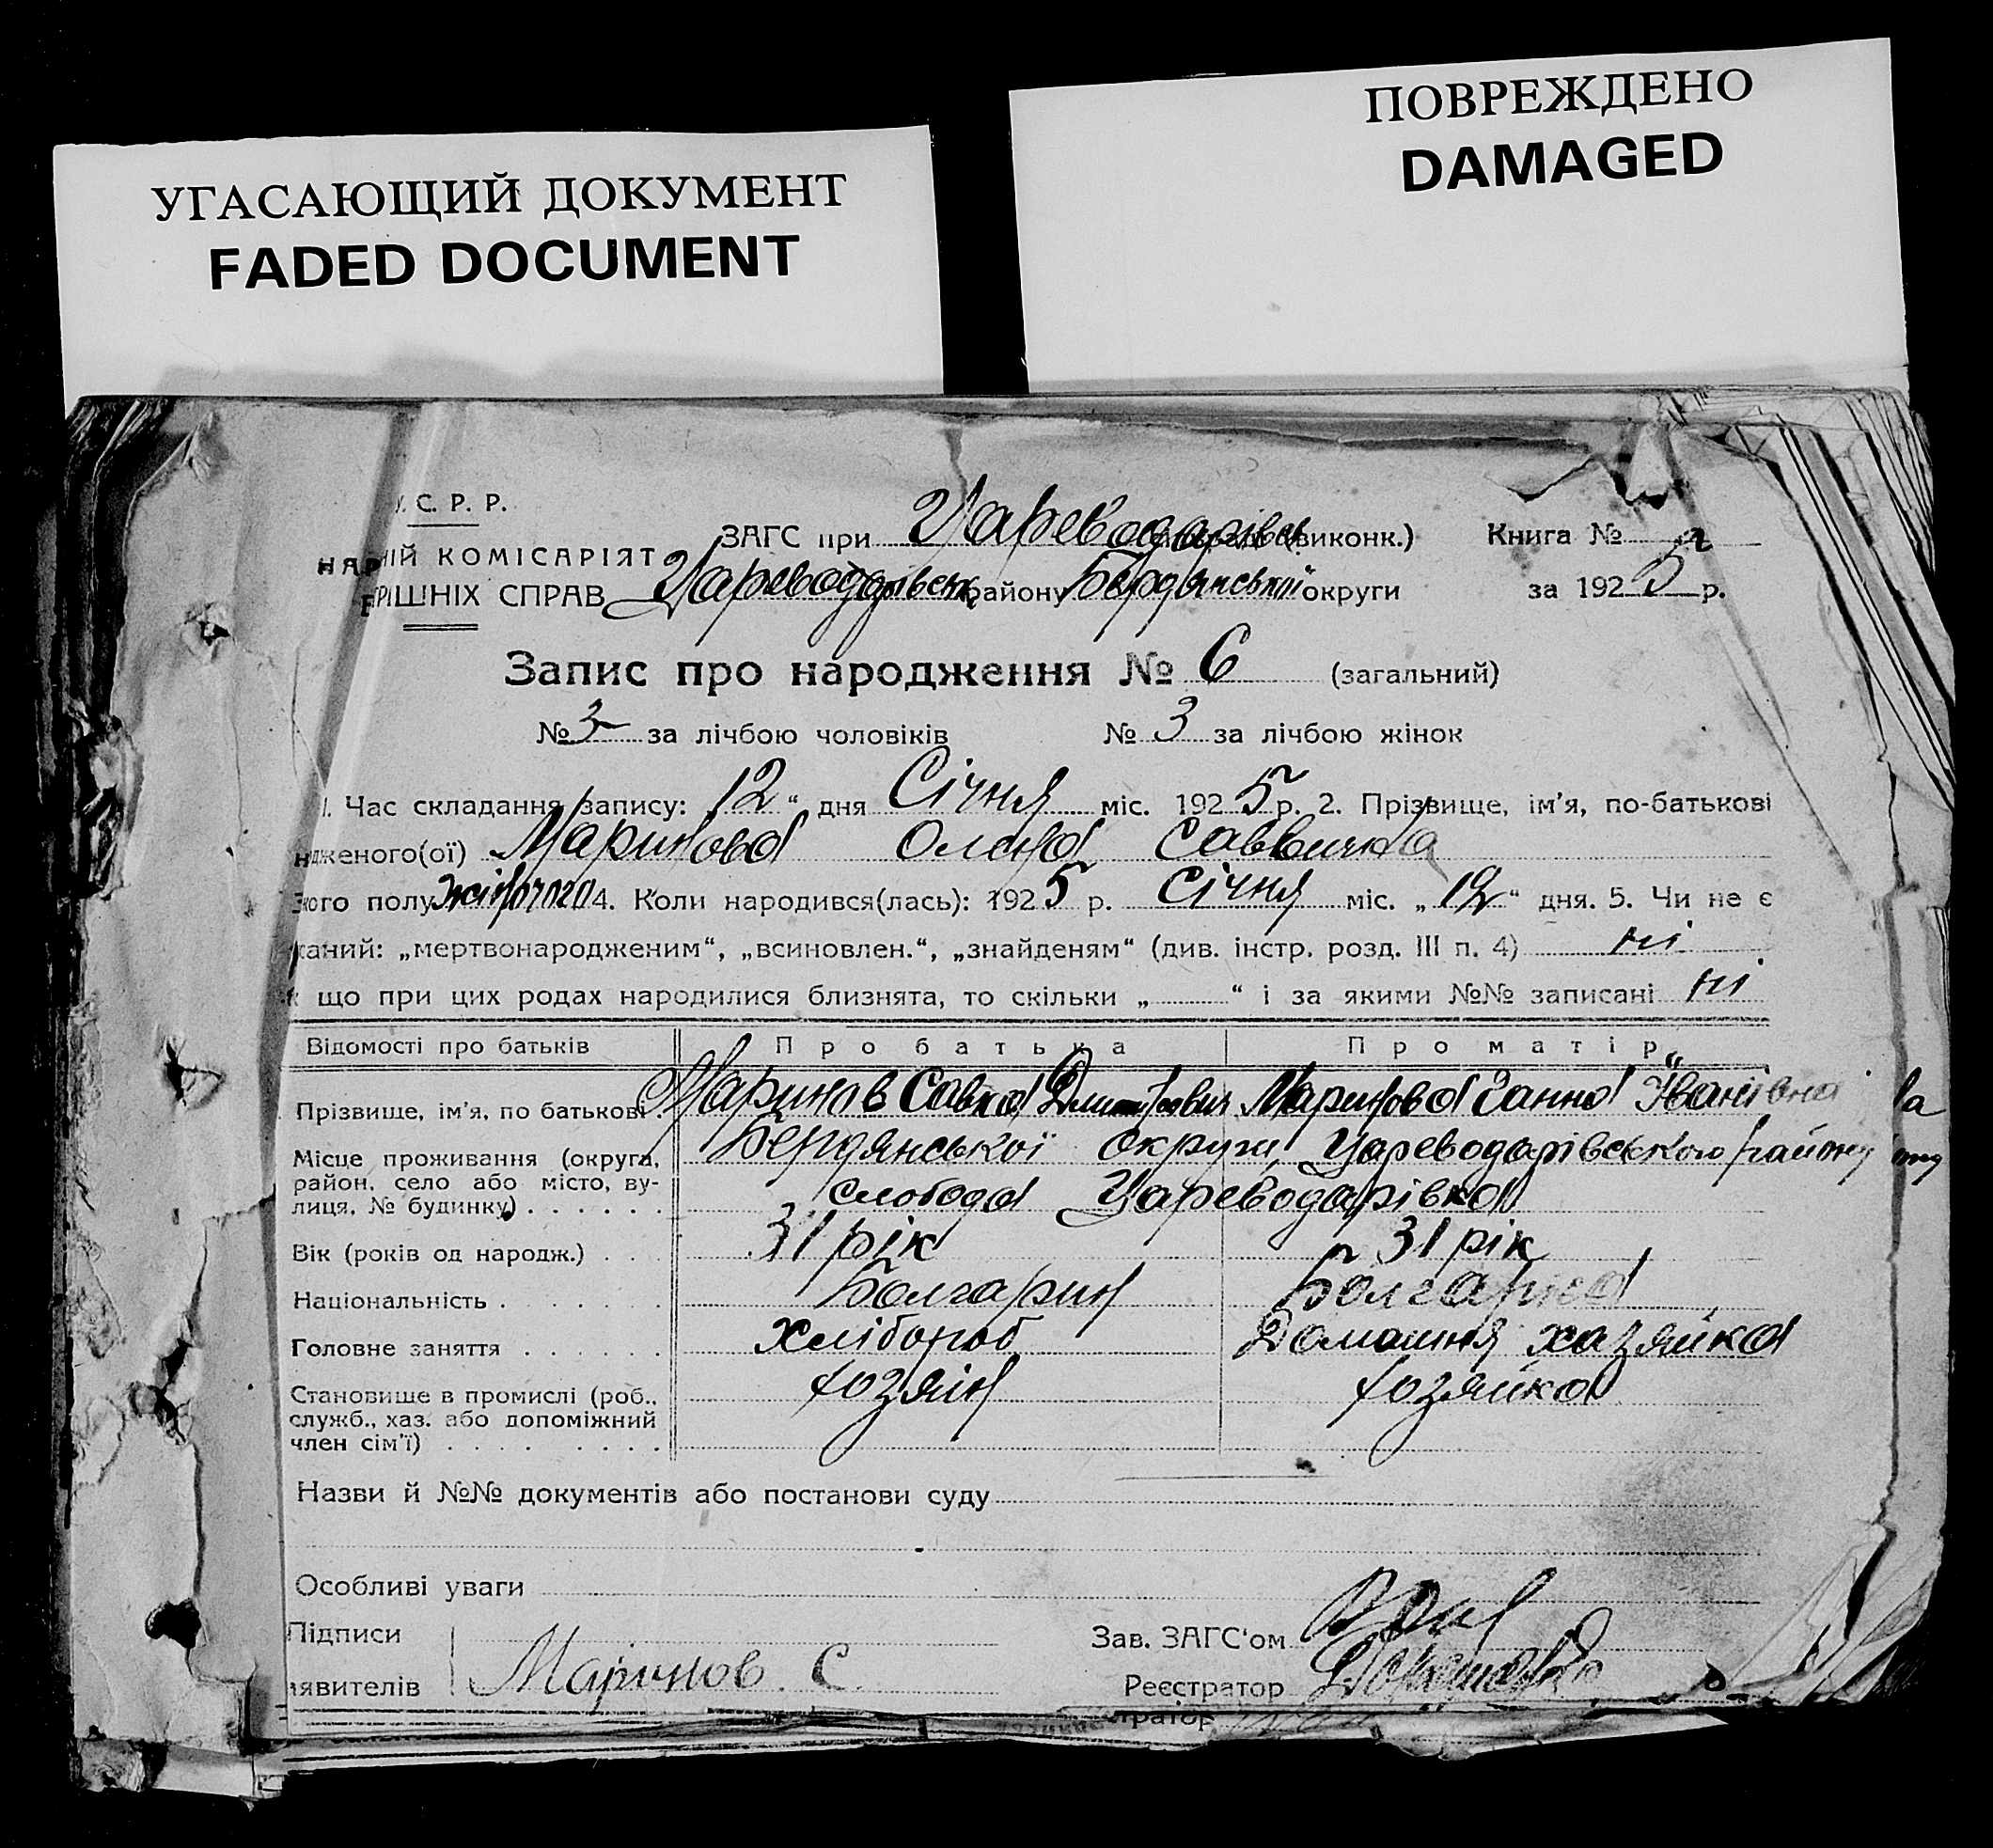 УГАСАЮЩИЙ ДОКУМЕНТ
FADED DOCUMENT
ПОВРЕЖДЕНО
DAMAGED
С. Р. Р.
НАР НІЙ КОМІСАРІЯТ
РІШНІХ СПРАВ
ЗАГС при Цареводарівс виконк.)
Книга №
Цареводарівськ району Бердянської округи
за 1925 р.
Запис про народження № 6 (загальний)
№ 3 за лічбою чоловіків № 3 за лічбою жінок
1. Час складання запису: „12“ дня Січня міс. 1925 р. 2. Прізвище, ім'я, по-батькові
дженого(ої) Маринова Олена Саввичка
кого полу жіночого 4. Коли народився(лась): 1925 р. Січня міс. „12“ дня. 5. Чи не є
каний: „мертвонародженим“, „всиновлен.“, „знайденям“ (див. інстр. розд. III п. 4) ні
що при цих родах народилися близнята, то скільки „ “ і за якими №№ записані ні
Відомості про батьків Про батька Про матір
Прізвище, ім'я, по батькові Маринов Савка Дмитрович Маринова Ганна Іванівна
Місце проживання (округа, Бердянської округи, Цареводарівського району
район, село або місто, ву-
лиця, № будинку) . . . . . . слобода Цареводарівка
Вік (років од народж.) . . . 31 рік 31 рік
Національність . . . . . . Болгарин Болгарка
Головне заняття . . . . . . Хлібороб Домашня хазяйка
Становище в промислі (роб., хозяїн хозяйка
служб., хаз. або допоміжний
член сім'ї) . . . . . . . . .
Назви й №№ документів або постанови суду
Особливі уваги
Підписи
явителів Маринов. С.
Зав. ЗАГС'ом
Реєстратор
тратор